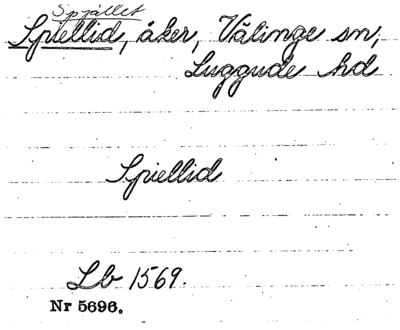 Spjället
Spiellid, åker, Välinge sn,
Luggude hd
Spiellid
Lb 1569.
Nr 5696.